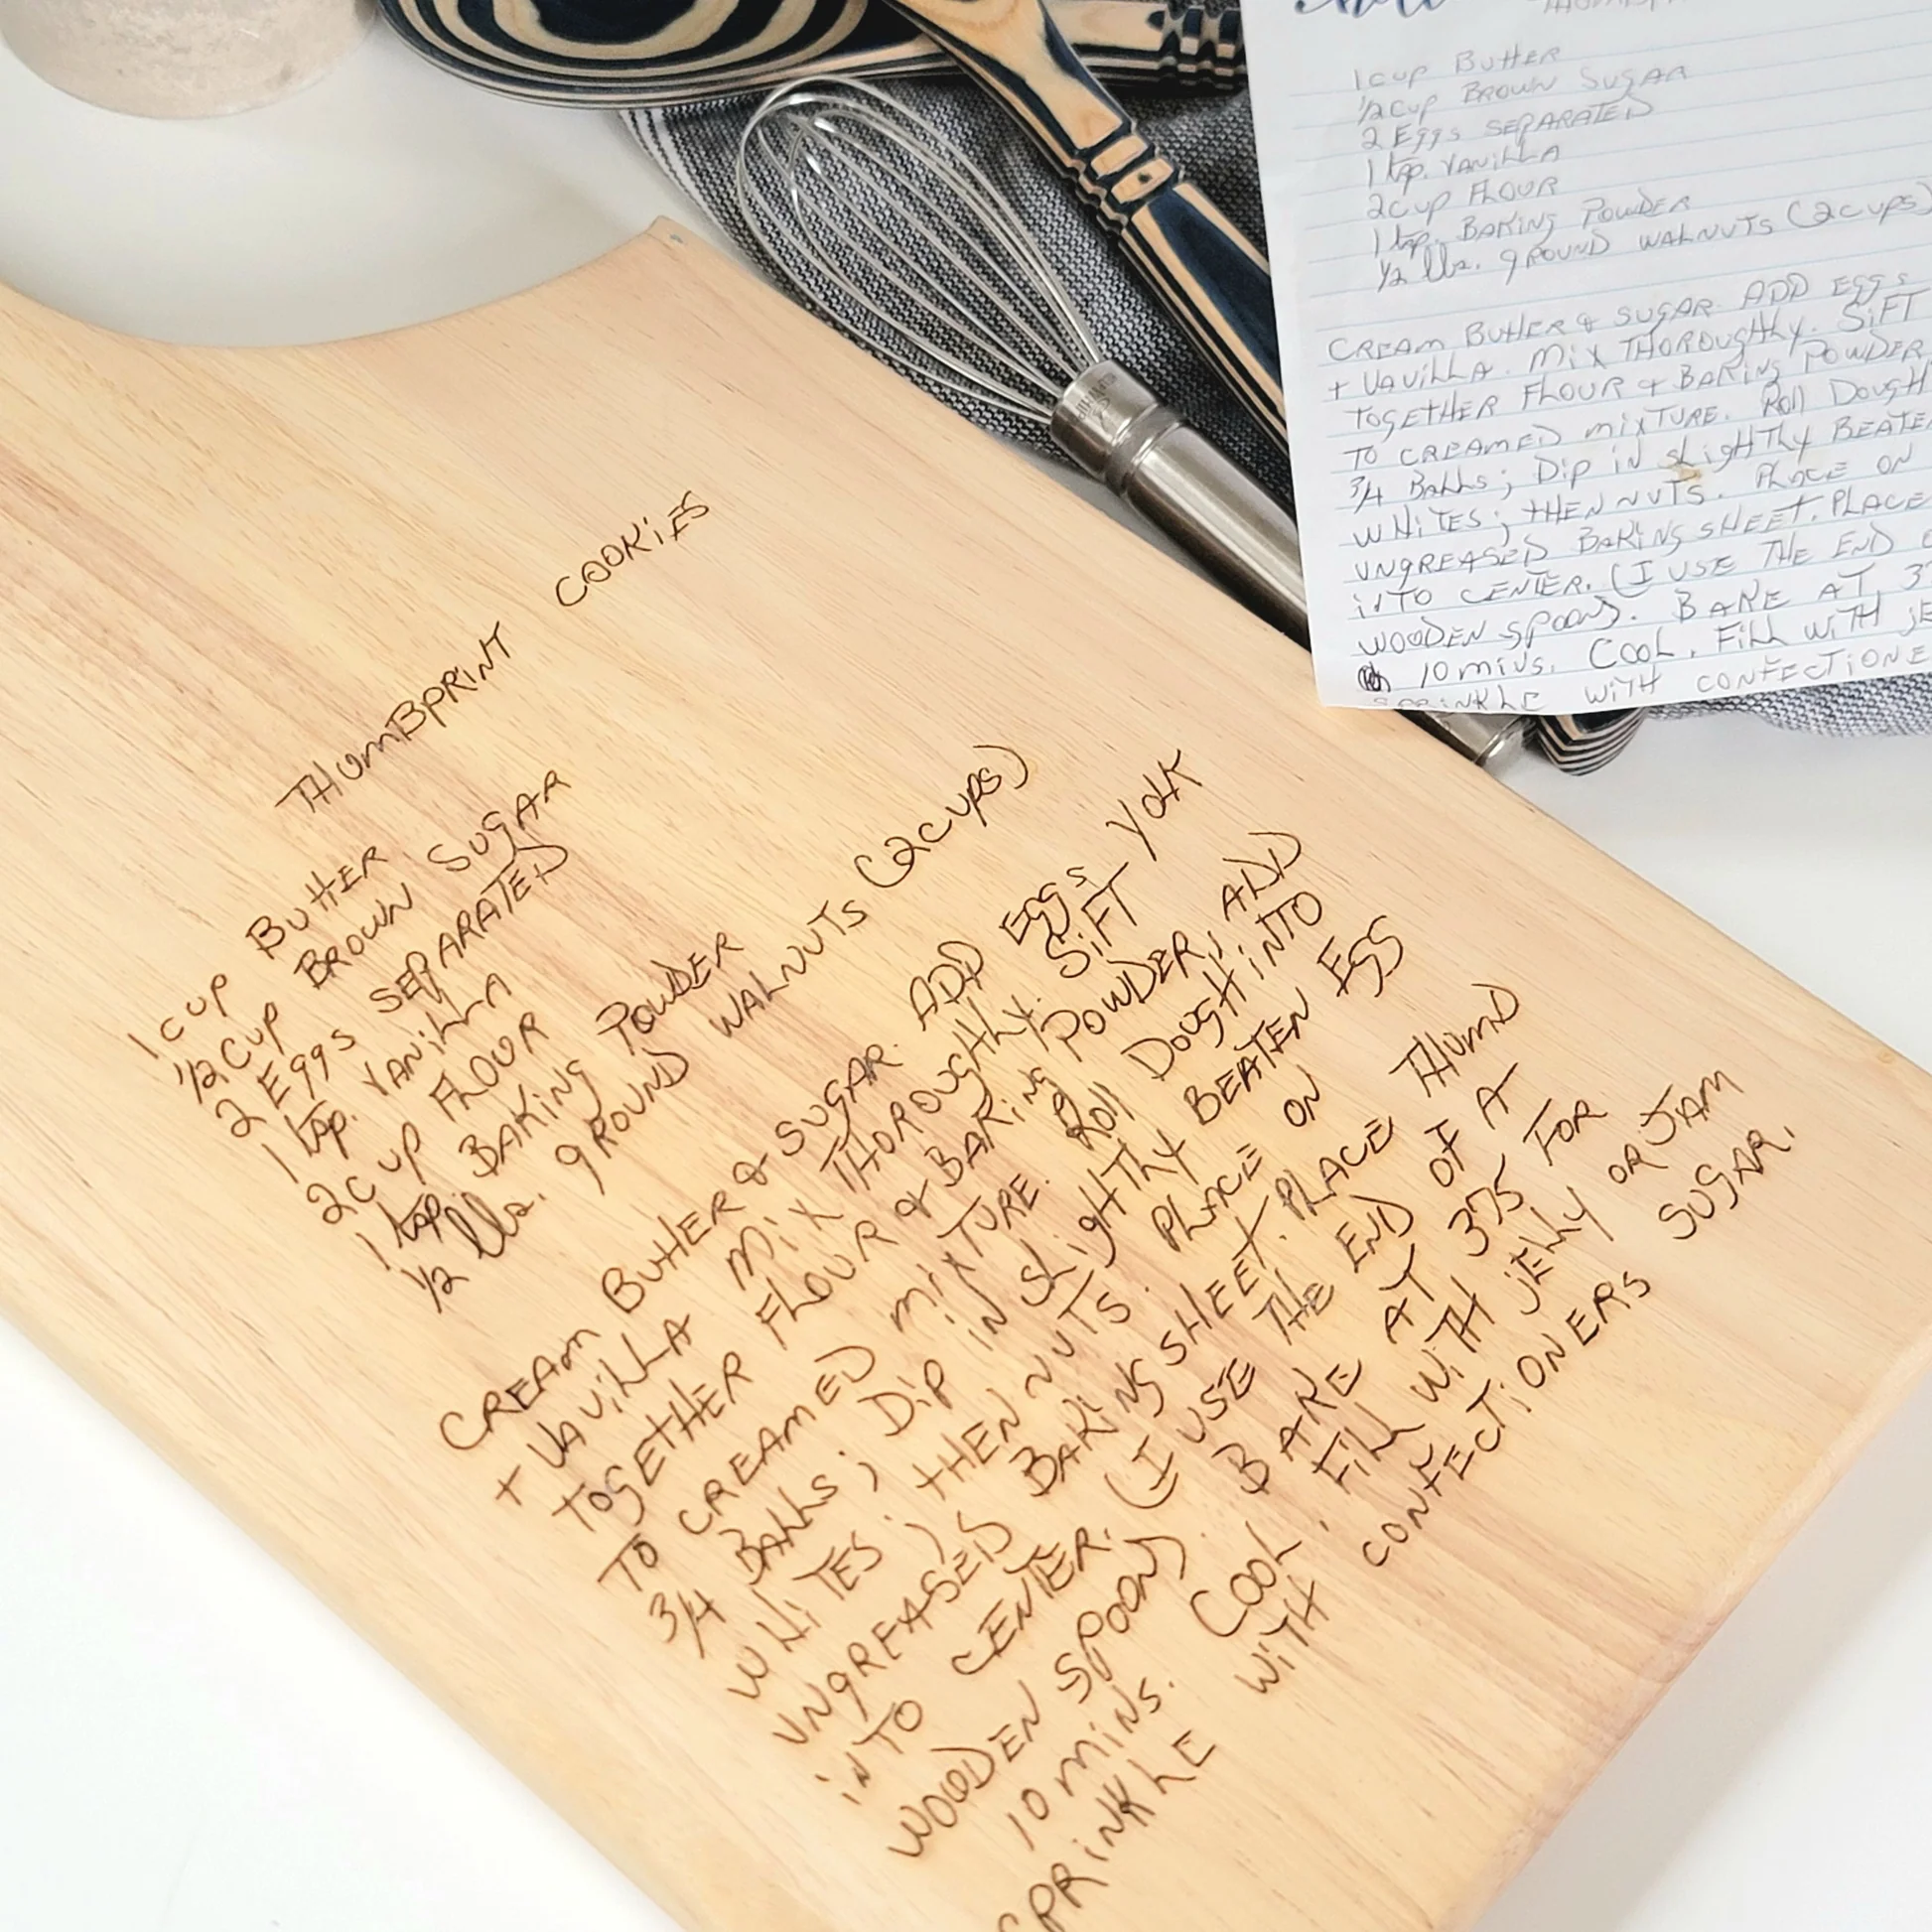 THUMBPRINT COOKIES
1 CUP BUTTER
1/2 CUP BROWN SUGAR
2 EggS SEPARATED
1 tsp. VANILLA
2 CUP FLOUR
1 tsp. BAKING POWDER
1/2 lbs. gROUND WALNUTS (2 CUPS)
CREAM BUTTER & SUGAR. ADD EggS YOLK
+ VAVILLA MIX THOROUGHLY. SiFT
TOGETHER FLOUR & BAKING POWDER, ADD
TO CREAMED MIXTURE. Roll DOUGH INTO
3/4 BALLS; DIP IN SLIGHTLY BEATEN EGG
WHITES; THEN NUTS. PLACE ON
UNgREASED BAKING SHEET. PLACE THUMB
INTO CENTER. (I USE THE END OF A
WOODEN SPOON). BAKE AT 375 FOR
10 MINS. COOL. FILL WITH JELLY OR JAM
SPRINKLE WITH CONFECTIONERS SUGAR.
1 CUP BUTTER
1/2 CUP BROWN SUGAR
2 EggS SEPARATED
1 tsp. VANILLA
2 CUP FLOUR
1 tsp. BAKING POWDER
1/2 lbs. gROUND WALNUTS (2 CUPS)
CREAM BUTTER & SUGAR. ADD EggS
+ VAVILLA. MIX THOROUGHLY. SiFT
TOGETHER FLOUR & BAKING POWDER,
TO CREAMED MIXTURE. Roll DOUGH
3/4 BALLS; DIP IN SLIGHTLY BEATE
WHITES; THEN NUTS. PLACE ON
UNgREASED BAKING SHEET. PLACE
INTO CENTER. (I USE THE END
WOODEN SPOON). BAKE AT 37
10 MINS. COOL. FILL WITH JE
SPRINKLE WITH CONFECTIONE